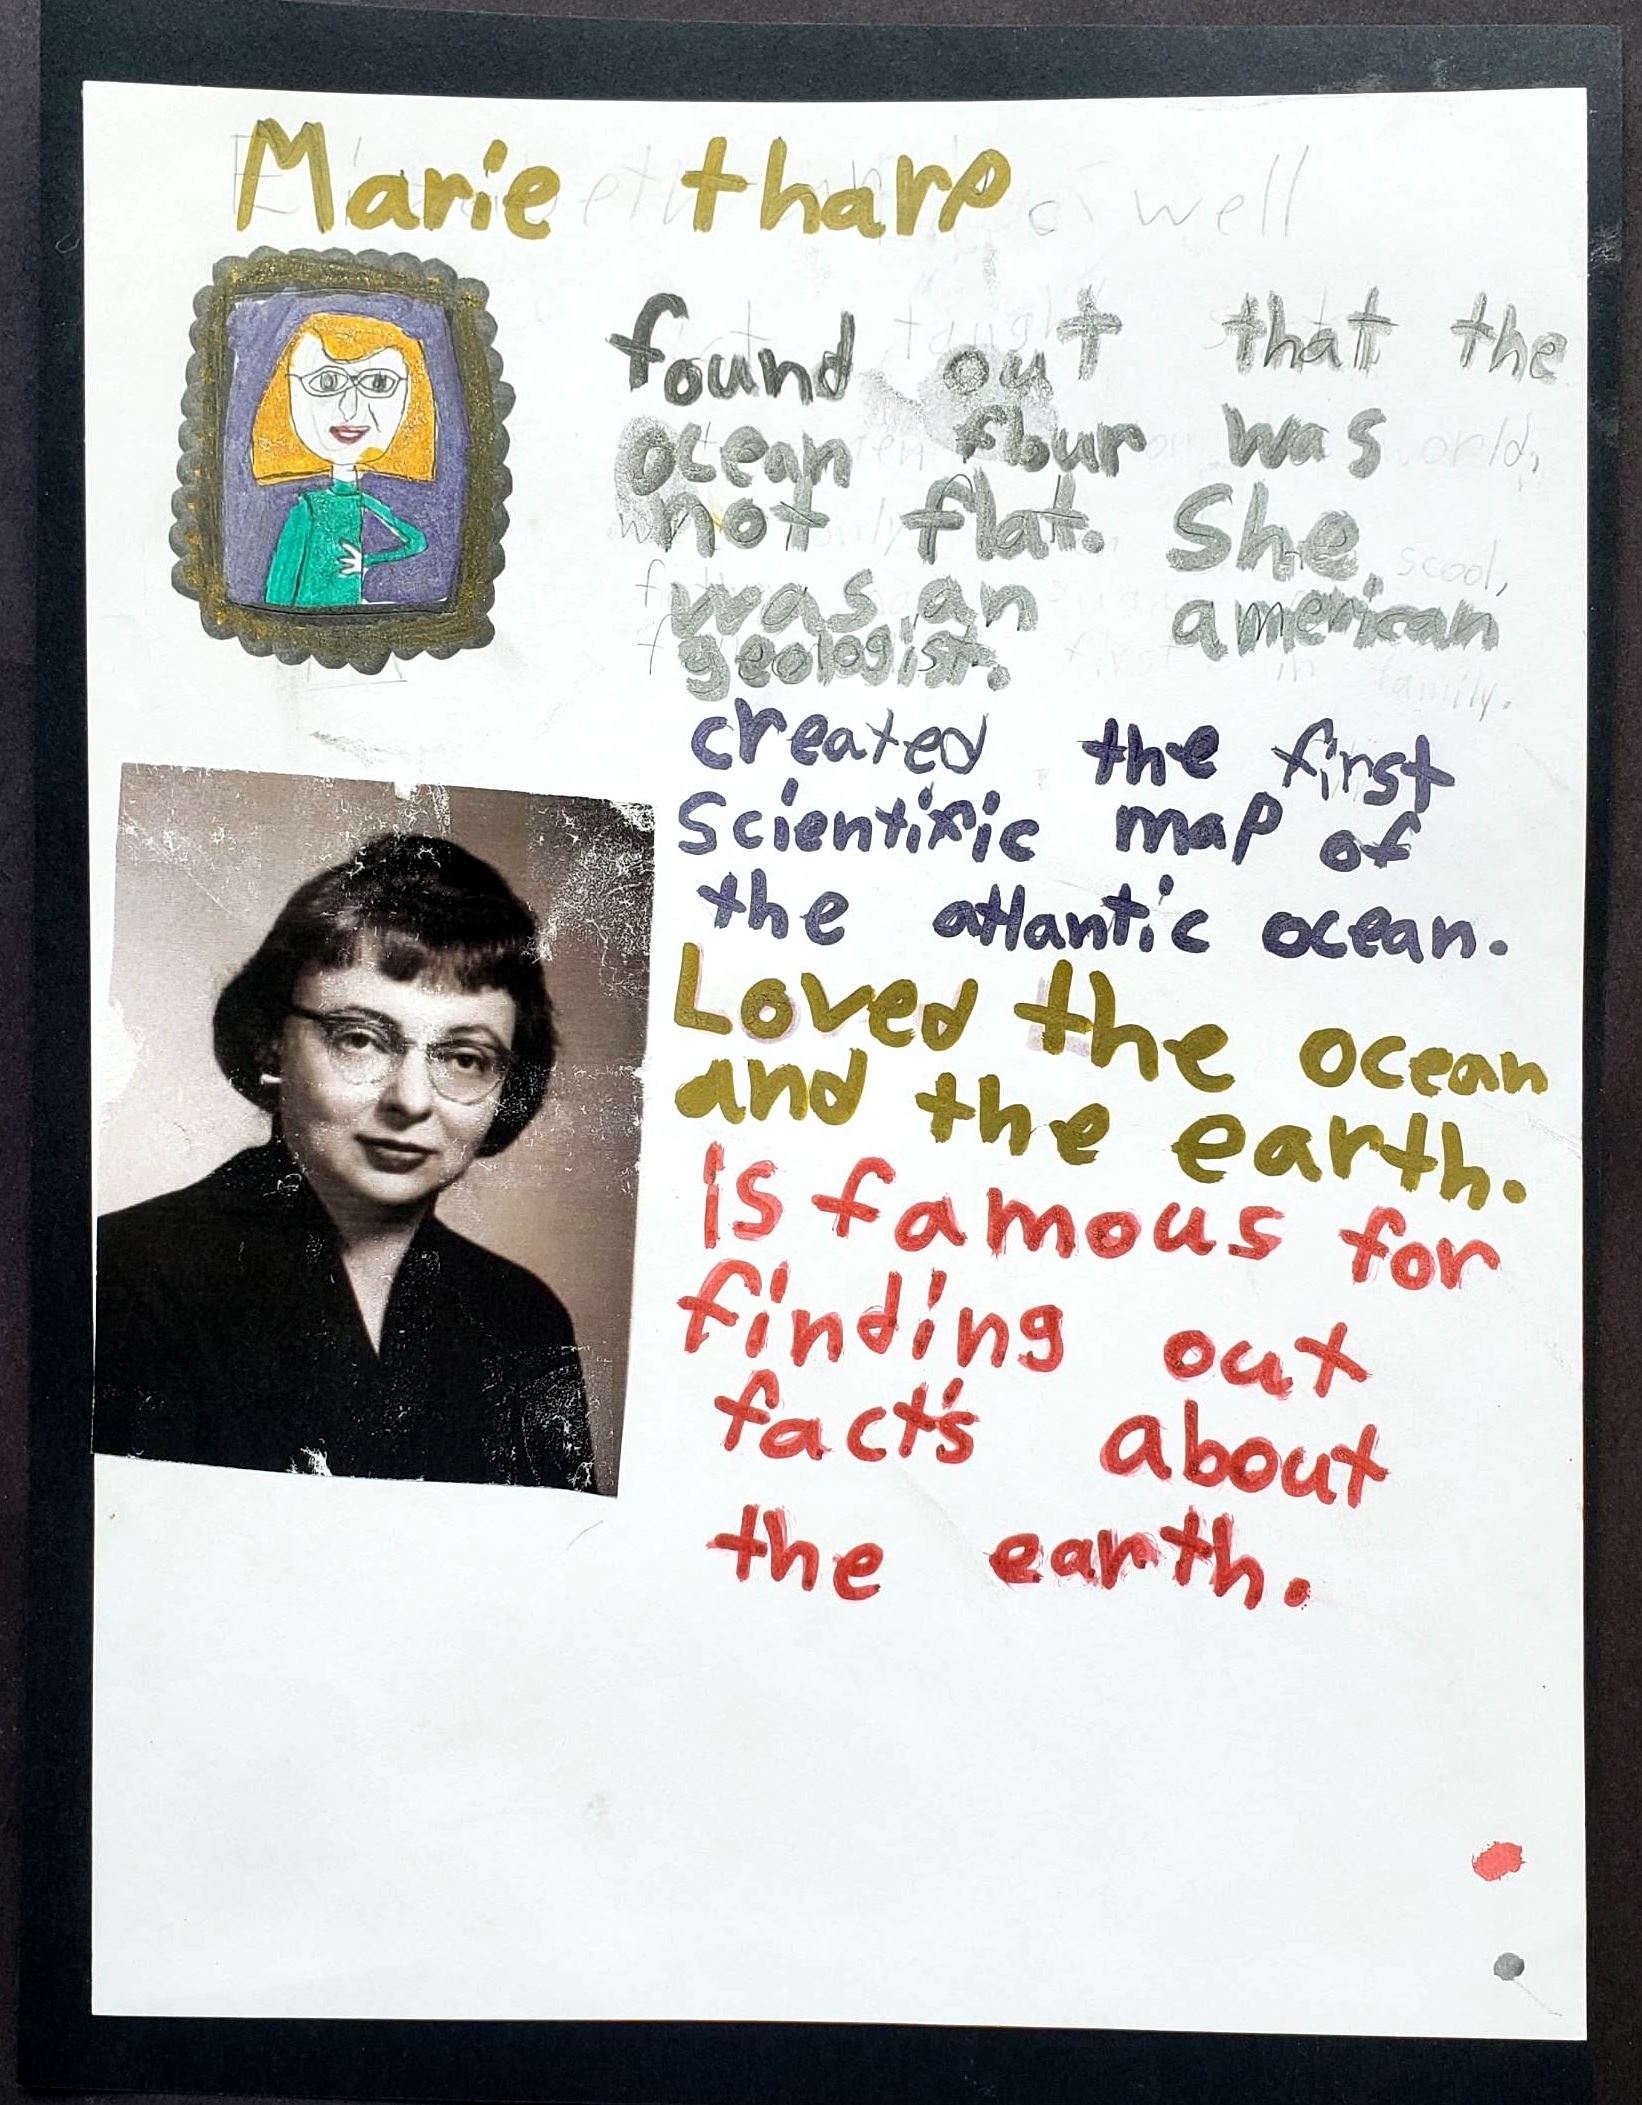 Marie tharp
well
found out that the
ocean flour was
world,
not flat. She
scool,
was an american
geologist.
first in family.
created the first
scientific map of
the atlantic ocean.
Loved the ocean
and the earth.
Is famous for
finding out
fact's about
the earth.